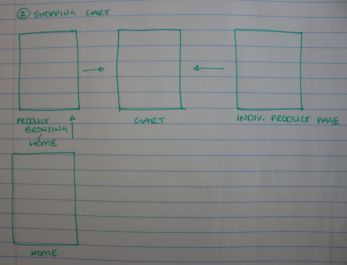 ② SHOPPING CART
PRODUCT
BROWSING/
HOME
CART
INDIV. PRODUCT PAGE
HOME